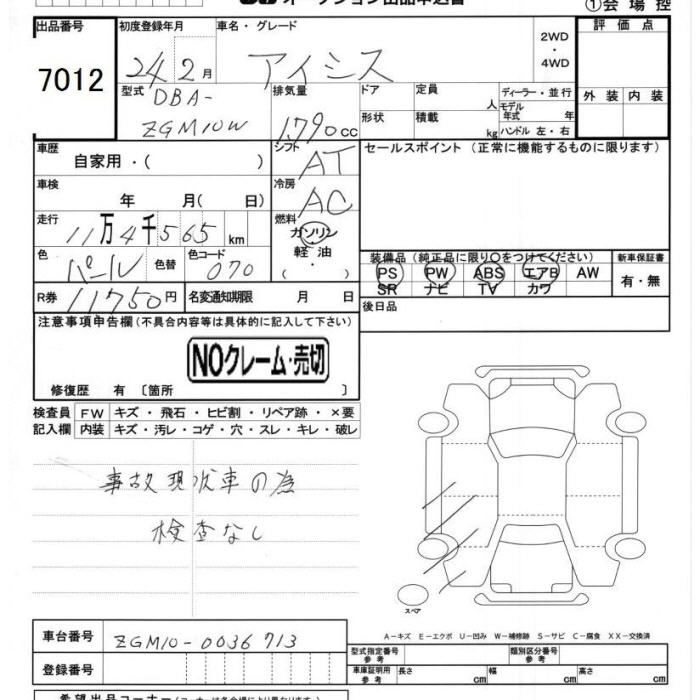 オークション出品申込書
①会場控
出品番号 初度登録年月 車名・グレード 評価点
7012 24 2月 アイシス 2WD・4WD
外装 内装
型式 DBA-ZGM10W 排気量 1790cc
ドア 定員 人 ディーラー・並行
モデル年式 年
形状 積載 kg ハンドル 左・右
車歴 自家用・( ) シフト AT
セールスポイント (正常に機能するものに限ります)
車検 年 月( 日) 冷房 AC
走行 11万4千565km 燃料 ガソリン
軽油
( ・ )
色 パール 色替 色コード 070
装備品(純正品に限り〇をつけてください) 新車保証書
PS PW ABS エアB AW 有・無
SR ナビ TV カワ
R券 11750円 名変通知期限 月 日
後日品
注意事項申告欄(不具合内容等は具体的に記入して下さい)
NOクレーム・売切
修復歴 有 〔箇所 〕
検査員 FW キズ・飛石・ヒビ割・リペア跡・×要
記入欄 内装 キズ・汚レ・コゲ・穴・スレ・キレ・破レ
事故現状車の為
検査なし
スペア
A-キズ E-エクボ U-凹み W-補修跡 S-サビ C-腐食 XX-交換済
車台番号 ZGM10-0036713
型式指定番号 参考 類別区分番号 参考
登録番号
車庫証明用 参考 長さ cm 幅 cm 高さ cm
希望出品コーナー(コーナーは各会場により異なります)